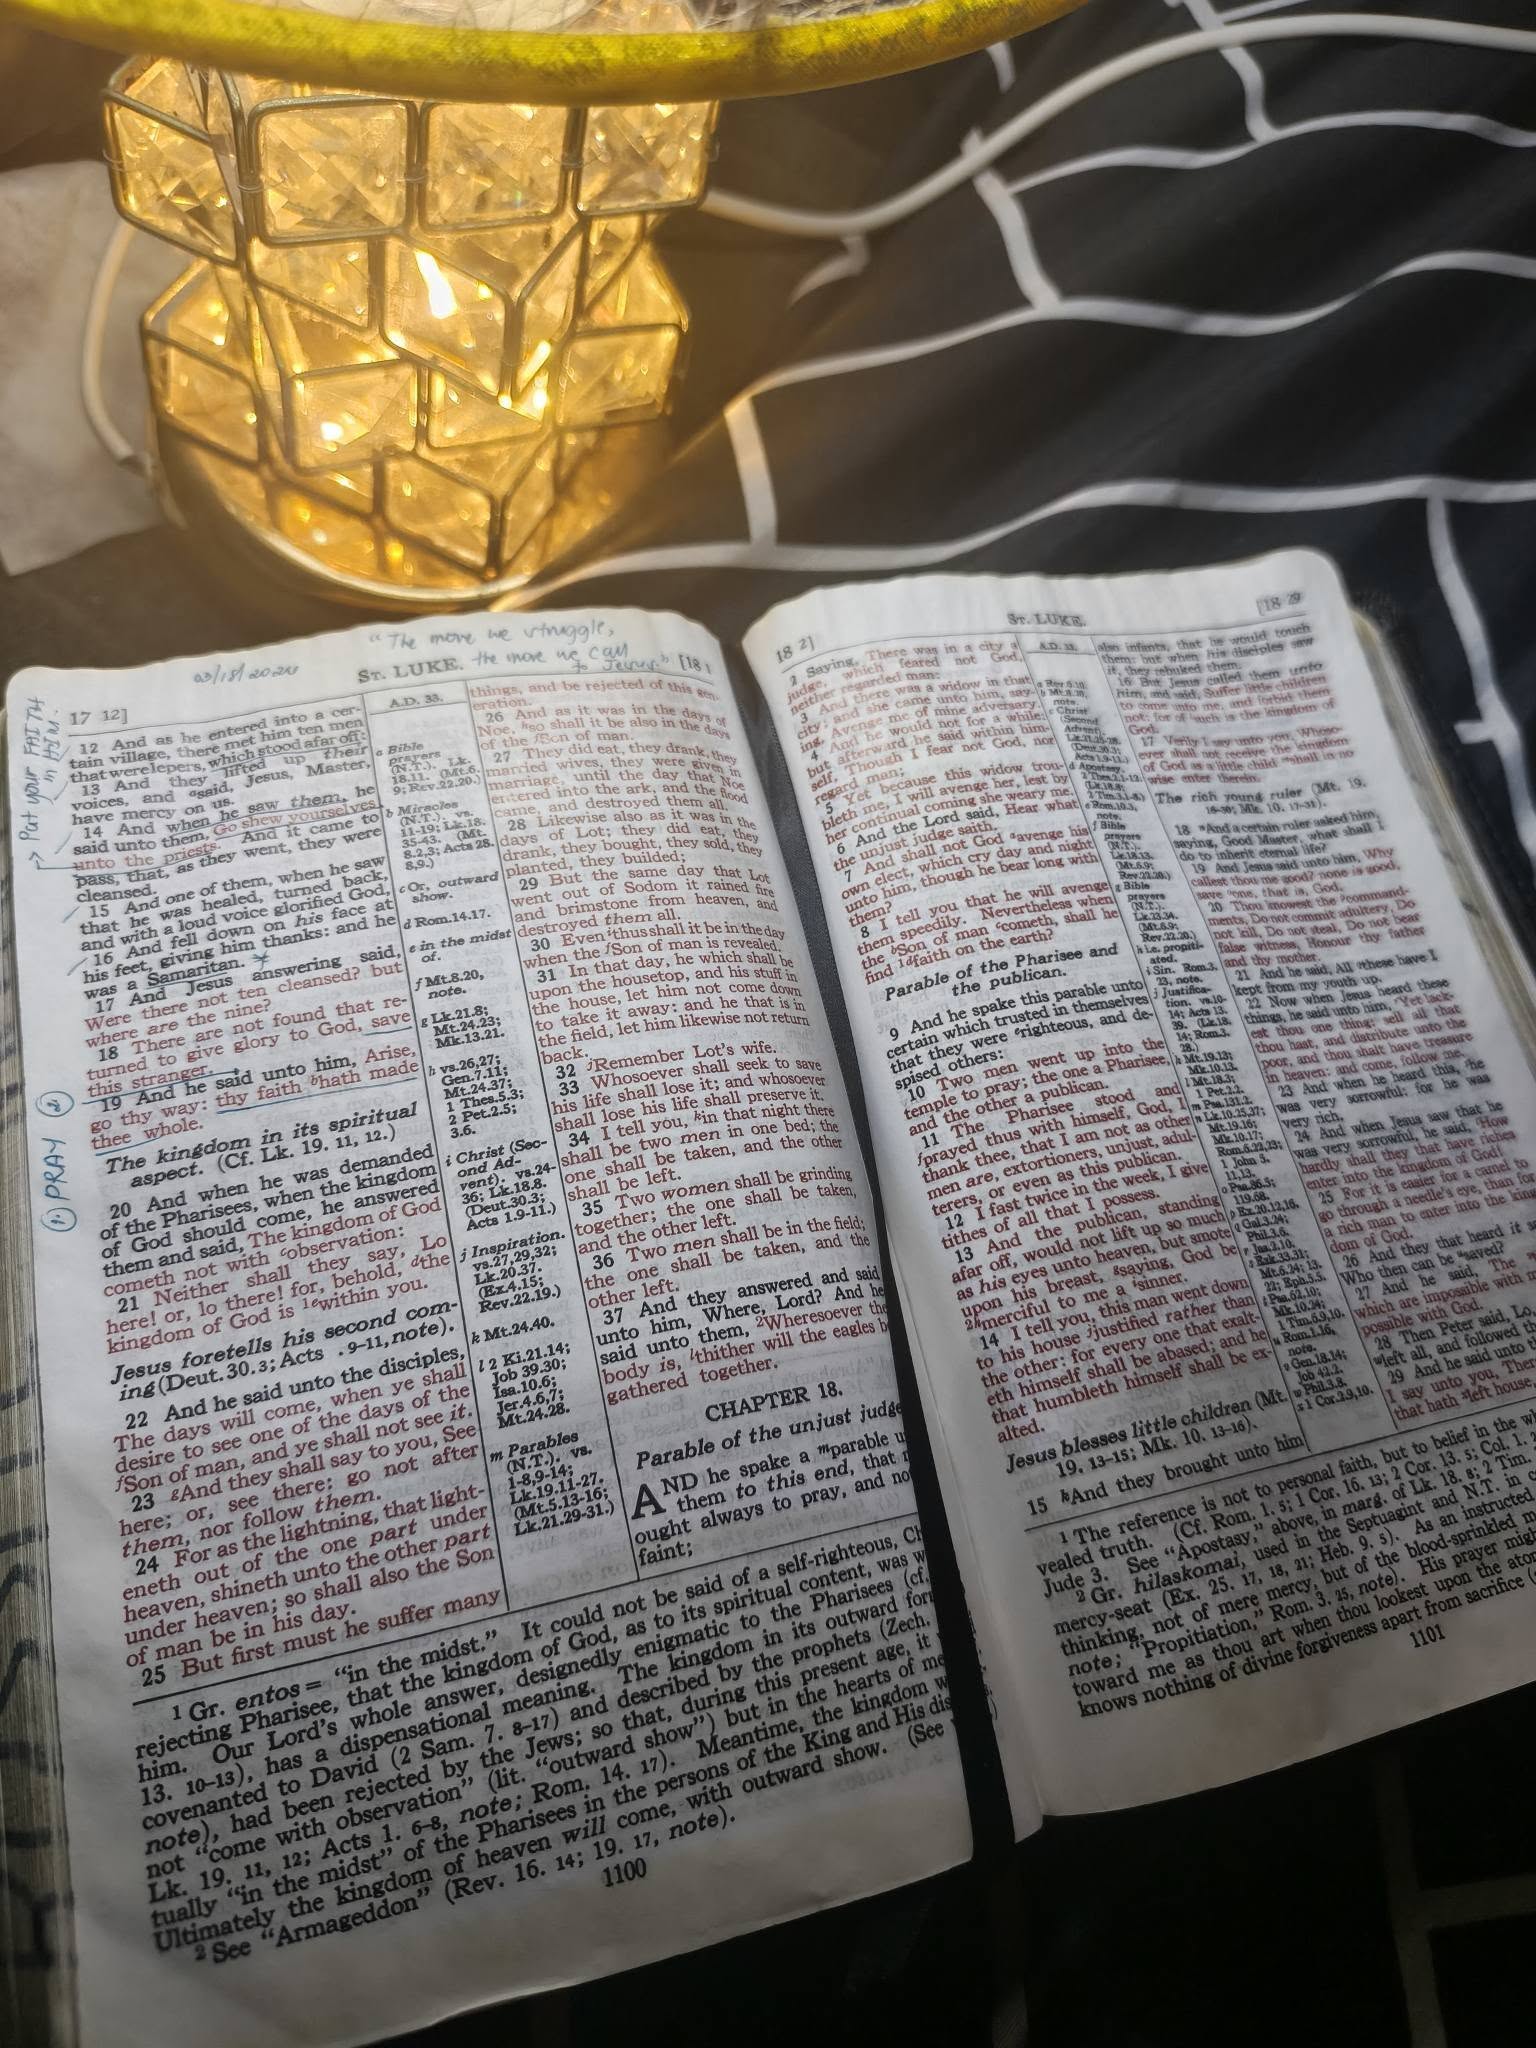 "The more we struggle,
the more we call
to Jesus."
03/15/2024
ST. LUKE.
[18 1
17 12]
Put your FAITH
in HIM.
1. PRAY
2.
12 And as he entered into a cer-
tain village, there met him ten men
that were lepers, which stood afar off:
13 And they lifted up their
voices, and asaid, Jesus, Master,
have mercy on us.
14 And when he saw them, he
said unto them, Go shew yourselves
unto the priests. And it came to
pass, that, as they went, they were
cleansed.
15 And one of them, when he saw
that he was healed, turned back,
and with a loud voice glorified God,
16 And fell down on his face at
his feet, giving him thanks: and he
was a Samaritan.
17 And Jesus answering said,
Were there not ten cleansed? but
where are the nine?
18 There are not found that re-
turned to give glory to God, save
this stranger.
19 And he said unto him, Arise,
go thy way: thy faith bhath made
thee whole.
The kingdom in its spiritual
aspect. (Cf. Lk. 19. 11, 12.)
20 And when he was demanded
of the Pharisees, when the kingdom
of God should come, he answered
them and said, The kingdom of God
cometh not with cobservation:
21 Neither shall they say, Lo
here! or, lo there! for, behold, dthe
kingdom of God is 1ewithin you.
Jesus foretells his second com-
ing (Deut. 30. 3; Acts . 9-11, note).
22 And he said unto the disciples,
The days will come, when ye shall
desire to see one of the days of the
fSon of man, and ye shall not see it.
23 gAnd they shall say to you, See
here; or, see there: go not after
them, nor follow them.
24 For as the lightning, that light-
eneth out of the one part under
heaven, shineth unto the other part
under heaven; so shall also the Son
of man be in his day.
25 But first must he suffer many
A.D. 33.
a Bible
prayers
(N.T.). Lk.
18.11. (Mt.6.
9; Rev.22.20.)
b Miracles
(N.T.). vs.
11-19; Lk.18.
35-43. (Mt.
8.2,3; Acts 28.
8,9.)
c Or, outward
show.
d Rom.14.17.
e in the midst
of.
f Mt.8.20,
note.
g Lk.21.8;
Mt.24.23;
Mk.13.21.
h vs.26,27;
Gen.7.11;
Mt.24.37;
1 Thes.5.3;
2 Pet.2.5;
3.6.
i Christ (Sec-
ond Ad-
vent). vs.24-
36; Lk.18.8.
(Deut.30.3;
Acts 1.9-11.)
j Inspiration.
vs.27,29,32;
Lk.20.37.
(Ex.4.15;
Rev.22.19.)
k Mt.24.40.
l 2 Ki.21.14;
Job 39.30;
Isa.10.6;
Jer.4.6,7;
Mt.24.28.
m Parables
(N.T.). vs.
1-8,9-14;
Lk.19.11-27.
(Mt.5.13-16;
Lk.21.29-31.)
things, and be rejected of this gen-
eration.
26 And as it was in the days of
Noe, hso shall it be also in the days
of the fSon of man.
27 They did eat, they drank, they
married wives, they were given in
marriage, until the day that Noe
entered into the ark, and the flood
came, and destroyed them all.
28 Likewise also as it was in the
days of Lot; they did eat, they
drank, they bought, they sold, they
planted, they builded;
29 But the same day that Lot
went out of Sodom it rained fire
and brimstone from heaven, and
destroyed them all.
30 Even ithus shall it be in the day
when the fSon of man is revealed.
31 In that day, he which shall be
upon the housetop, and his stuff in
the house, let him not come down
to take it away: and he that is in
the field, let him likewise not return
back.
32 jRemember Lot's wife.
33 Whosoever shall seek to save
his life shall lose it; and whosoever
shall lose his life shall preserve it.
34 I tell you, kin that night there
shall be two men in one bed; the
one shall be taken, and the other
shall be left.
35 Two women shall be grinding
together; the one shall be taken,
and the other left.
36 Two men shall be in the field;
the one shall be taken, and the
other left.
37 And they answered and said
unto him, Where, Lord? And he
said unto them, 2Wheresoever the
body is, lthither will the eagles be
gathered together.
CHAPTER 18.
Parable of the unjust judge
AND he spake a mparable u
them to this end, that
ought always to pray, and no
faint;
1 Gr. entos = "in the midst." It could not be said of a self-righteous, Ch
rejecting Pharisee, that the kingdom of God, as to its spiritual content, was w
him. Our Lord's whole answer, designedly enigmatic to the Pharisees (cf.
13. 10-13), has a dispensational meaning. The kingdom in its outward for
covenanted to David (2 Sam. 7. 8-17) and described by the prophets (Zech.
note), had been rejected by the Jews; so that, during this present age, it
not "come with observation" (lit. "outward show") but in the hearts of me
Lk. 19. 11, 12; Acts 1. 6-8, note; Rom. 14. 17). Meantime, the kingdom w
tually "in the midst" of the Pharisees in the persons of the King and His dis
Ultimately the kingdom of heaven will come, with outward show. (See
2 See "Armageddon" (Rev. 16. 14; 19. 17, note).
1100
18 2]
ST. LUKE.
[18 29
2 Saying, There was in a city a
judge, which feared not God,
neither regarded man:
3 And there was a widow in that
city; and she came unto him, say-
ing, Avenge me of mine adversary.
4 And he would not for a while:
but afterward he said within him-
self, Though I fear not God, nor
regard man;
5 Yet because this widow trou-
bleth me, I will avenge her, lest by
her continual coming she weary me.
6 And the Lord said, Hear what
the unjust judge saith.
7 And shall not God aavenge his
own elect, which cry day and night
unto him, though he bear long with
them?
8 I tell you that he will avenge
them speedily. Nevertheless when
the bSon of man ccometh, shall he
find 1dfaith on the earth?
Parable of the Pharisee and
the publican.
9 And he spake this parable unto
certain which trusted in themselves
that they were erighteous, and de-
spised others:
10 Two men went up into the
temple to pray; the one a Pharisee,
and the other a publican.
11 The Pharisee stood and
fprayed thus with himself, God, I
thank thee, that I am not as other
men are, extortioners, unjust, adul-
terers, or even as this publican.
12 I fast twice in the week, I give
tithes of all that I possess.
13 And the publican, standing
afar off, would not lift up so much
as his eyes unto heaven, but smote
upon his breast, gsaying, God be
2hmerciful to me a isinner.
14 I tell you, this man went down
to his house jjustified rather than
the other: for every one that exalt-
eth himself shall be abased; and he
that humbleth himself shall be ex-
alted.
Jesus blesses little children (Mt.
19. 13-15; Mk. 10. 13-16).
15 kAnd they brought unto him
A.D. 33.
note.
c Christ
(Second
Advent).
(Deut.30.3;
Acts 1.9-11.)
d Apostasy.
note.
f Bible
prayers
(N.T.).
Lk.18.13.
(Mt.6.9;
Rev.22.20.)
g Bible
prayers
(N.T.).
Lk.23.34.
(Mt.6.9;
Rev.22.20.)
h i.e. propiti-
ated.
i Sin. Rom.3.
23, note.
j Justifica-
tion. vs.10-
14; Acts 13.
39. (Lk.18.
14; Rom.3.
28.)
k Mt.19.13;
Mk.10.13.
l Mt.18.3;
1 Pet.2.2.
m Psa.131.2.
n Lk.10.25,37;
Mt.19.16;
Mk.10.17;
also infants, that he would touch
them: but when his disciples saw
it, they rebuked them.
16 But Jesus called them unto
him, and said, Suffer little children
to come unto me, and forbid them
not: for of such is the kingdom of
God.
17 Verily I say unto you, Whoso-
ever shall not receive the kingdom
of God as a little child mshall in no
wise enter therein.
The rich young ruler (Mt. 19.
16-30; Mk. 10. 17-31).
18 nAnd a certain ruler asked him,
saying, Good Master, what shall I
do to inherit eternal life?
19 And Jesus said unto him, Why
callest thou me good? none is good,
save one, that is, God.
20 Thou knowest the command-
ments, Do not commit adultery, Do
not kill, Do not steal, Do not bear
false witness, Honour thy father
and thy mother.
21 And he said, All these have I
kept from my youth up.
22 Now when Jesus heard these
things, he said unto him, Yet lack-
est thou one thing: sell all that
thou hast, and distribute unto the
poor, and thou shalt have treasure
in heaven: and come, follow me.
23 And when he heard this, he
was very sorrowful: for he was
very rich.
24 And when Jesus saw that he
was very sorrowful, he said, How
hardly shall they that have riches
enter into the kingdom of God!
25 For it is easier for a camel to
go through a needle's eye, than for
a rich man to enter into the king-
dom of God.
26 And they that heard it s
Who then can be saved?
27 And he said, The
which are impossible with m
possible with God.
28 Then Peter said, Lo,
left all, and followed th
29 And he said unto th
I say unto you, Ther
that hath left house,
1 The reference is not to personal faith, but to belief in the wh
vealed truth. (Cf. Rom. 1. 5; 1 Cor. 16. 13; 2 Cor. 13. 5; Col. 1. 2
Jude 3. See "Apostasy," above, in marg. of Lk. 18. 8; 2 Tim.
2 Gr. hilaskomai, used in the Septuagint and N.T. in c
mercy-seat (Ex. 25. 17, 18, 21; Heb. 9. 5). As an instructed
thinking, not of mere mercy, but of the blood-sprinkled m
note; "Propitiation," Rom. 3. 25, note). His prayer migh
toward me as thou art when thou lookest upon the aton
knows nothing of divine forgiveness apart from sacrifice (s
1101